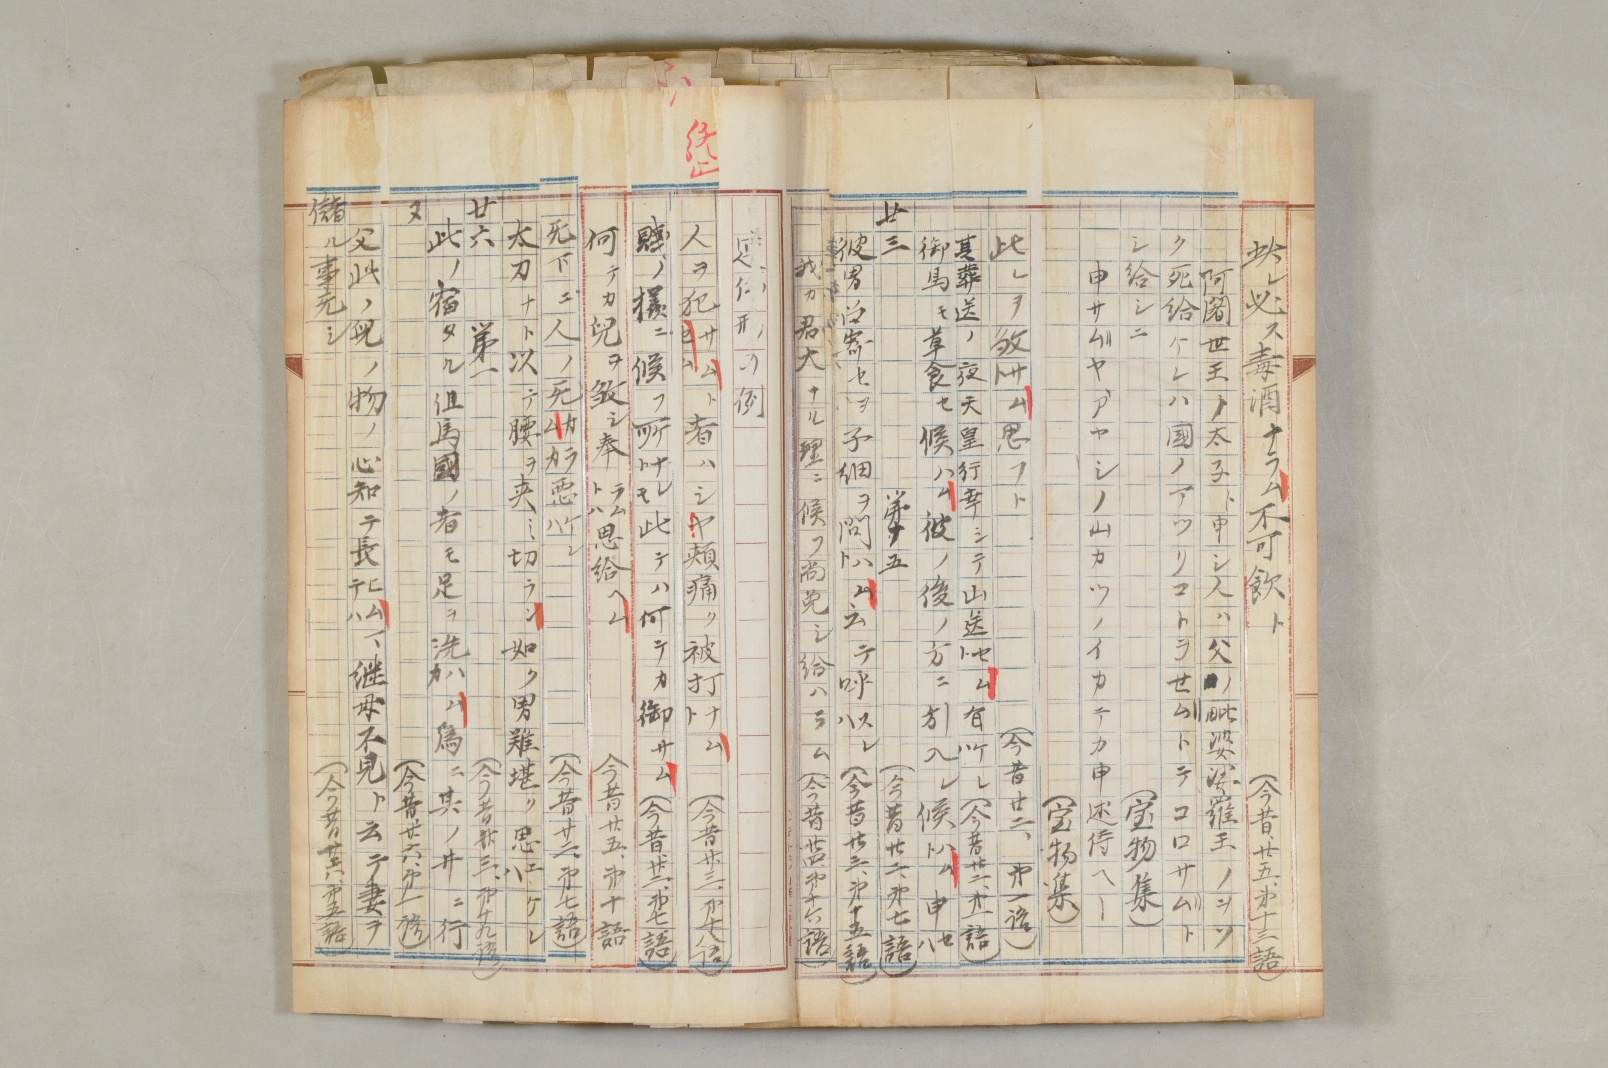 此レ必ス毒酒ナラム不可飲ト
(今昔、廿五、第十三語)
阿闍世王ノ太子ト申シ人ハ父ノ毗婆娑羅王ノシソ
ク死給ケレハ國ノアツリコトヲセムトテコロサムト
シ給シニ
(宝物集)
申サムヤアヤシノ山カツノイカテカ申述侍ヘー
(宝物集)
此レヲ殺サムト思フト
(今昔廿二、第一語)
其葬送ノ夜天皇行幸シテ山送セムト有ケレハ
(今昔廿二、第一語)
御馬モ草食セ候ハム彼ノ後ノ方ニ引入レ候ハムト申セハ
(今昔廿二、第七語)
廿三 第十五
彼男召寄セヲ子細ヲ問ハムト云テ呼ハスレハ
(今昔廿三、第十五語)
我カ君大ナル理ニ候フ尚免シ給ハラム
(今昔廿四、第十六語)
終止
人ヲ犯サムト者ハシヤ頬痛ク被打ナムト
(今昔廿三、第十八語)
賤ノ様ニ候フ所ナレトモ此テハ何テカ御サム
(今昔廿二、第七語)
何テカ兒ヲ殺シ奉ラムトハ思給ヘム
今昔廿五、第十語
死下ニ人ノ死ムカラカ悪ケレハ
(今昔廿二、第七語)
太刀ナト以テ腰ヲ夾ミ切ラン如ク男難堪ク思エケレハ
(今昔廿三、第十九語)
廿六 第一
此ノ宿タル但馬國ノ者モ足ヲ洗ハムカ為ニ其ノ井ニ行
(今昔廿六、第一語)
又
父此ノ兒ノ物ノ心知テ長ヒムテハ継母不見ト云テ妻ヲ
儲ル事无シ
(今昔廿六、第五語)